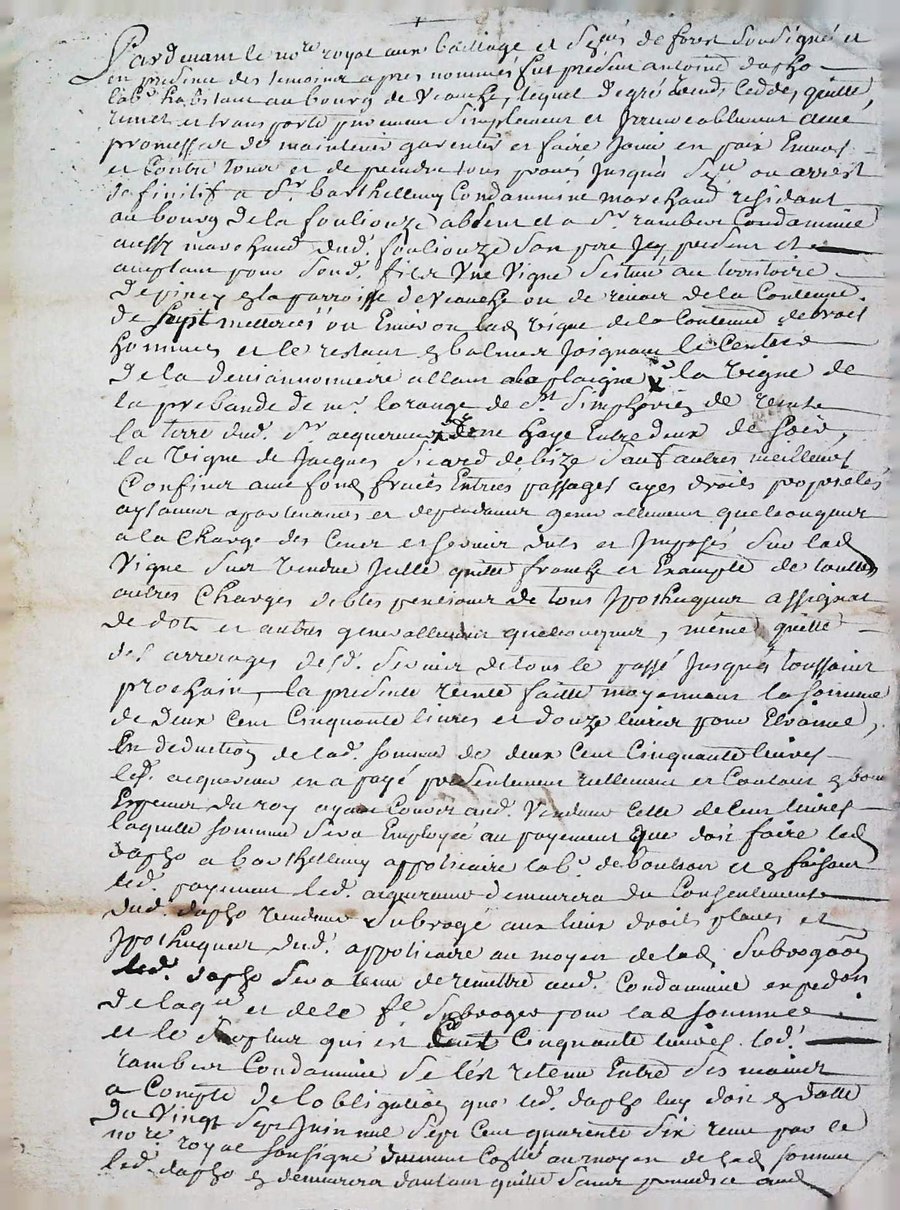 Pardevant le no.re royal aux bailliage et de forest soussigné et
en presence des temoins apres nommés fut present antoine
lab.r habitant au bourg de veauche, lequel de gré vend, cedde, quitte,
remet et transporte purement simplement et Irrevocablement avec
promesse de maintenir garentir et faire Jouir en paix Envers
et Contre tous et de prendre tous procés Jusqu'a ou arrest
definitif a S.r barthellemy Condammine marchand residant
au bourg de la fouliouze absent et a S.r rambert Condammine
aussy marchand dud. fouliouze son pere Icy present et
acceptant pour sond. fils Une Vigne situé au territoire
de parroisse de veauche ou de rivas de la Contenue
de Sept ou Environ lad vigne de la Contenue de trois
hommes et le restant Joignant le Centier
de la allant a la plaigne la vigne de
la prebande de m.r lorange de S.t Simphorien de vente
la terre dud. S.r acquereur haye Entre deux de soir,
la vigne de Jacques Sicard de bize Sauf autres meilleurs
Confins avec fond fruits Entrées passages ayes droits proprietés
aysances apartenances et dependances generallement quelconques
a la Charge des Cens et servis dubs et Imposés Sur lad
Vigne Sus vendue Icelle quitte franche et Exempte de toutes
autres Charges debtes pensions de tous Ipothuques assignat
de dot et autres generallement quelconques, même quitte
des arrerages desd. servis de tous le passé Jusqu'a toussaint
prochain, la presente vente faitte moyennant la somme
de deux Cent Cinquante livres et douze livres pour Etraine,
En deduction de lad. somme de deux Cent Cinquante livres
led. acquereur en a payé presentement reellement et Contant en bonnes
Especes du roy ayant Cours aud. Vendeur Celle de Cent livres
laquelle somme sera Employée au payement que doit faire led
a barthellemy appoticaire lab.r de bouthéon et en faisant
led. payement led. acquereur demeurera du Consentement
dud. vendeur Subrogé aux lieu droits places et
Ipothuques dud. appoticaire au moyen de lad Subrogation
led. sera tenu de remettre aud. Condammine expedition
de la et de le Subroger pour lad somme
et le Surplus qui est Cent Cinquante livres led.
rambert Condammine se l'est retenu Entre ses mains
a Compte de l'obligation que led. luy doit en datte
du Vingt Sept Juin mil Sept Cent quarente Six reçue par le
no.re royal soussigné au moyen de lad somme
led. en demeurera d'autant quitte sans prejudice aud